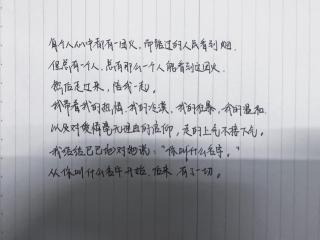 每个人心中都有一团火，而路过的人只看到烟。
但总有一个人，总有那么一个人能看到这团火，
然后走过来，陪我一起。
我带着我的热情，我的冷漠，我的狂暴，我的温和，
以及对爱情毫无理由的信仰，走的上气不接下气。
我结结巴巴地对她说：“你叫什么名字。”
从你叫什么名字开始，后来，有了一切。